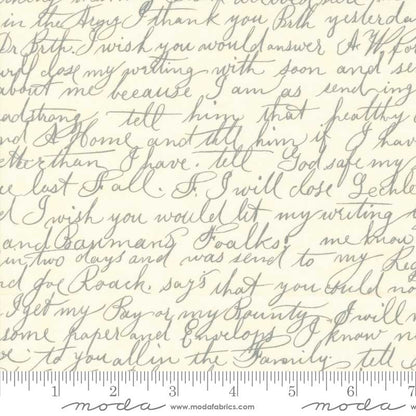 in the Army I thank you Beth yesterday
Dr. Beth. I wish you would answer
close my writing with soon and se
about me because I am as sending
adstrong. tell him that healthy
nd A Home and tell him if I hav
etter than I have. tell God safe my
ce last Fall. F. I will close
d I wish you would let my writing
and Foalks, me know
un, two days and was send to my Reg
nd Joe Roach. says that you could no
I get my Pay or my Bounty I will
some paper and Envelops I know n
to you all in the Family tell
1 2 3 4 5 6
moda www.modafabrics.com moda